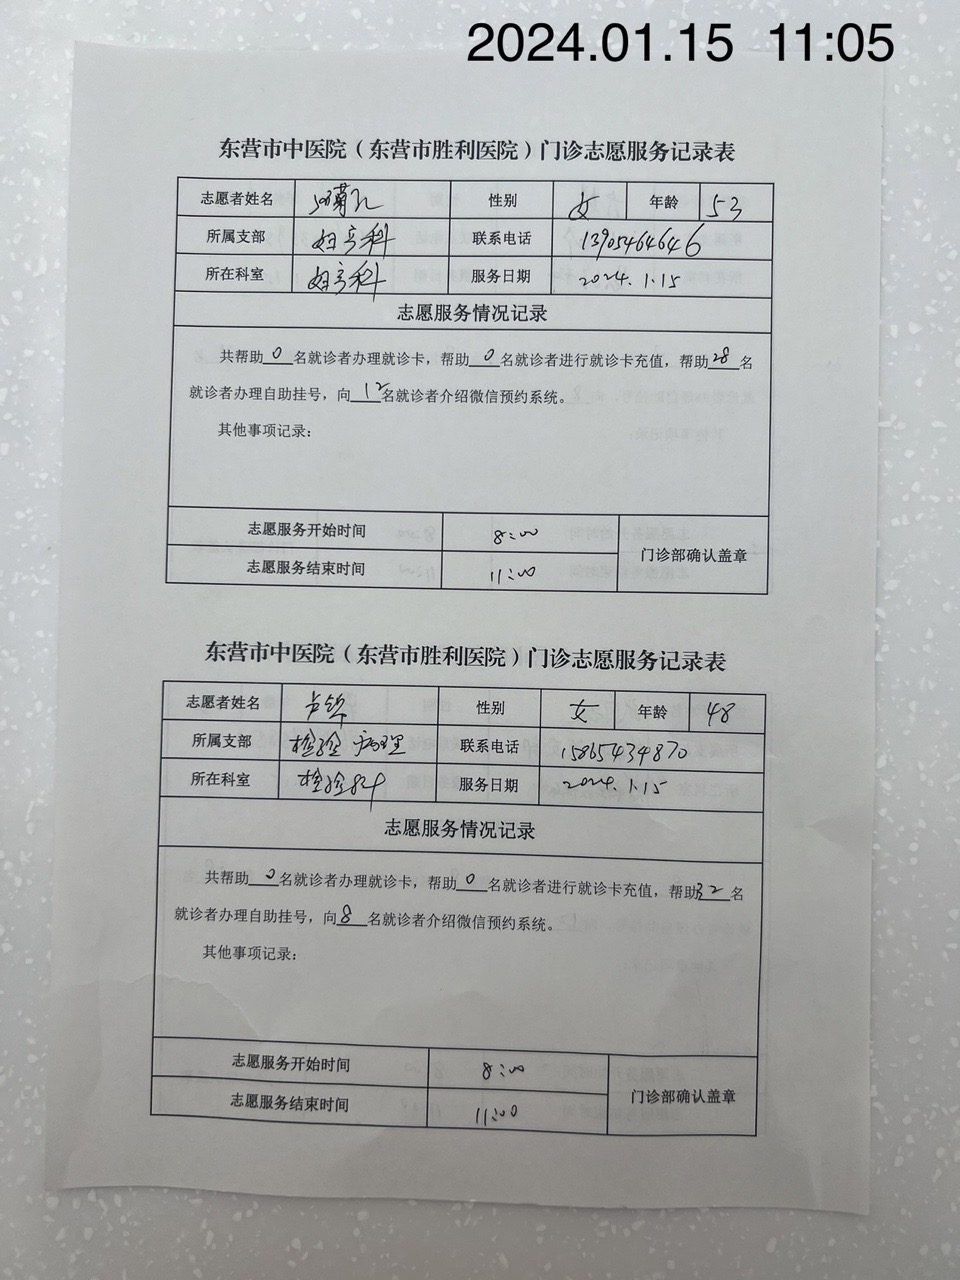 2024.01.15 11:05
东营市中医院（东营市胜利医院）门诊志愿服务记录表
志愿者姓名 性别 女 年龄 53
所属支部 妇产科 联系电话 13905464646
所在科室 妇产科 服务日期 2024.1.15
志愿服务情况记录
共帮助0名就诊者办理就诊卡，帮助0名就诊者进行就诊卡充值，帮助28名
就诊者办理自助挂号，向12名就诊者介绍微信预约系统。
其他事项记录：
志愿服务开始时间 8:00
门诊部确认盖章
志愿服务结束时间 11:00
东营市中医院（东营市胜利医院）门诊志愿服务记录表
志愿者姓名 性别 女 年龄 48
所属支部 检验病理 联系电话 15865434870
所在科室 检验科 服务日期 2024.1.15
志愿服务情况记录
共帮助0名就诊者办理就诊卡，帮助0名就诊者进行就诊卡充值，帮助32名
就诊者办理自助挂号，向8名就诊者介绍微信预约系统。
其他事项记录：
志愿服务开始时间 8:00
门诊部确认盖章
志愿服务结束时间 11:00